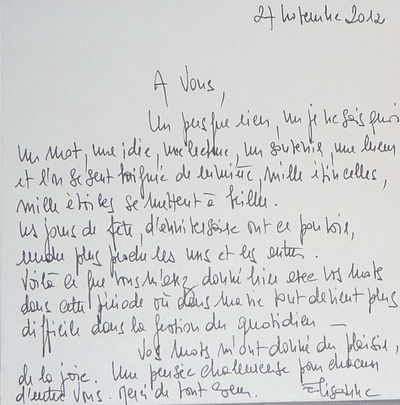 27 Novembre 2012
A Vous,
Un peu que rien, un je ne sais quoi
Un mot, une idée, une lecture, un soutenir, une lueur
et l'on se sent baignée de lumière, mille étincelles,
mille étoiles se mettent à briller.
Les jours de fête, d'anniversaire ont ce pouvoir,
rendre plus proche les uns et les autres.
Voilà ce que vous m'avez donné hier avec vos mots
dans cette période où dans ma vie tout devient plus
difficile dans la gestion du quotidien —
Vos mots m'ont donné du plaisir,
de la joie. Une pensée chaleureuse pour chacun
d'entre vous. Merci de tout coeur.